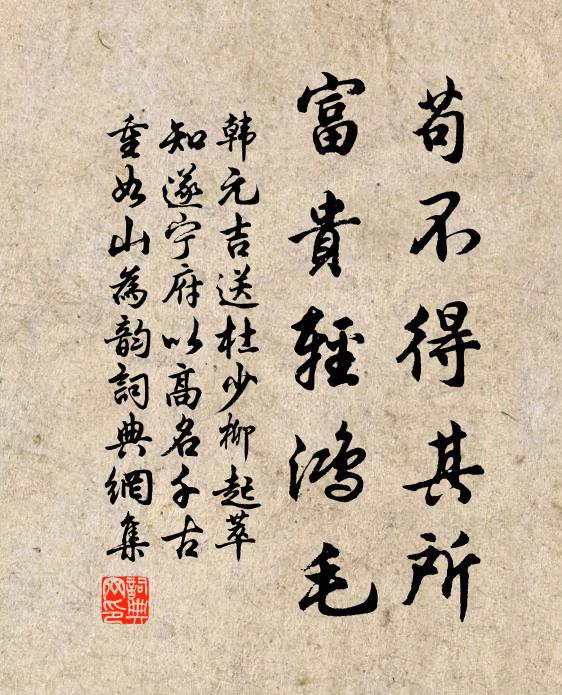 苟不得其所
富貴輕鴻毛
韩元吉送杜少柳起萃
知遂宁府以高名千古
重如山為韵詞典網集
詞典